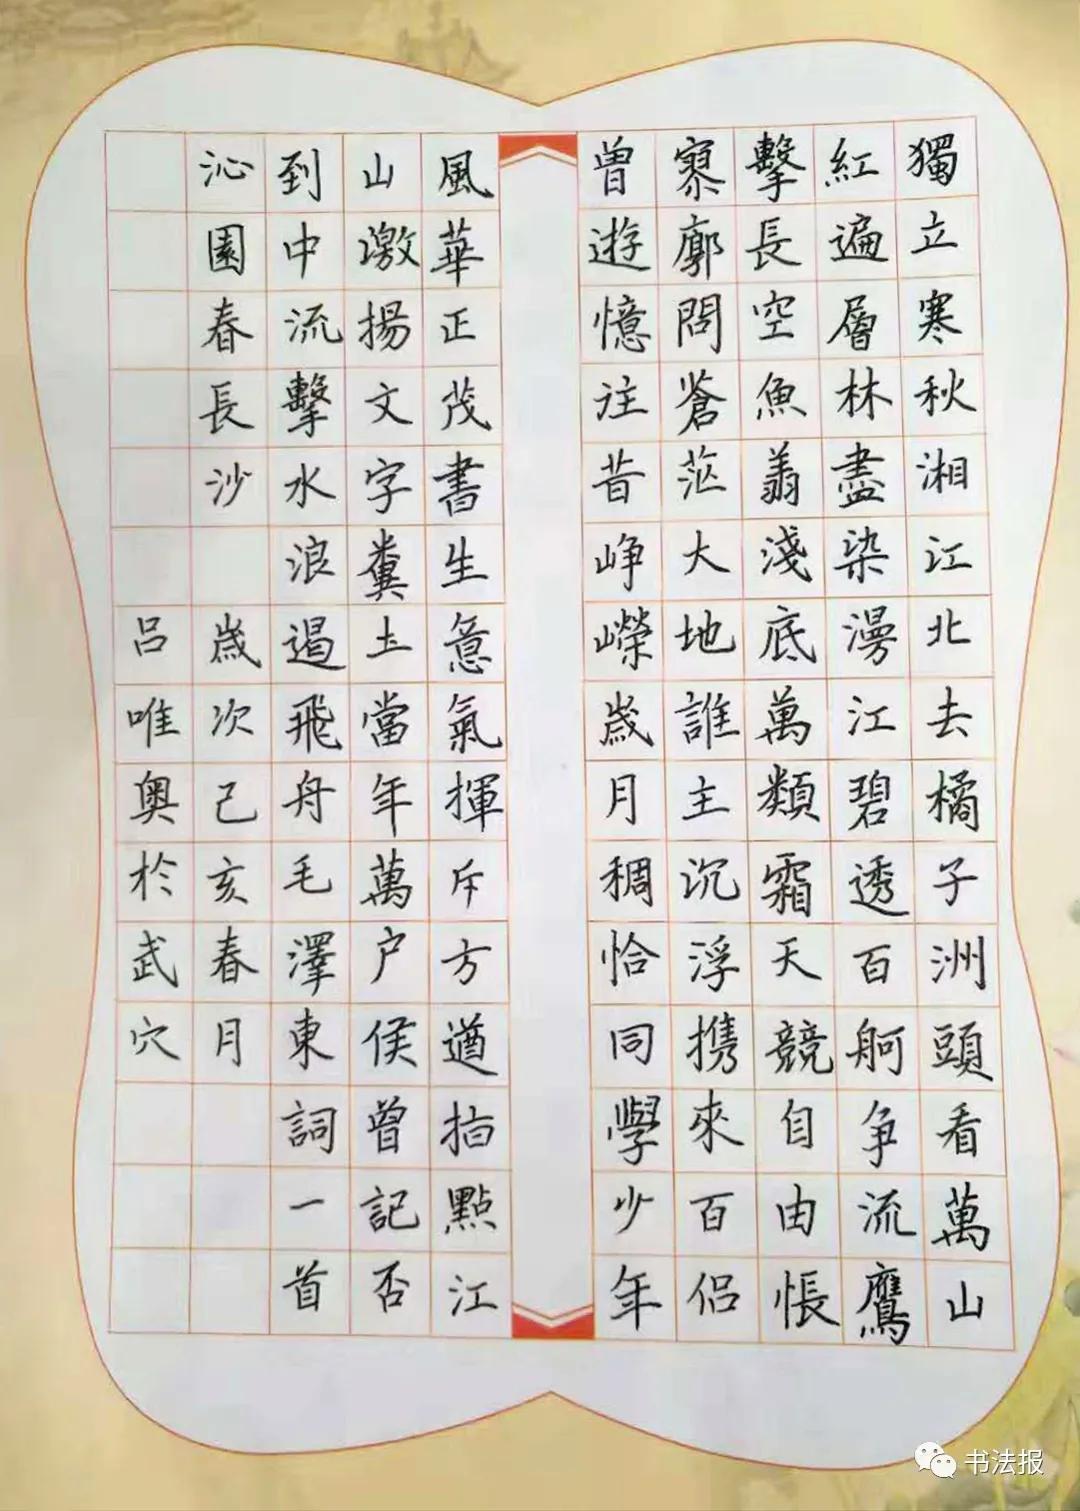 獨立寒秋湘江北去橘子洲頭看萬山
紅遍層林盡染漫江碧透百舸争流鷹
擊長空魚翔淺底萬類霜天競自由悵
寥廓問蒼茫大地誰主沉浮携來百侣
曾遊憶往昔峥嶸歲月稠恰同學少年
風華正茂書生意氣揮斥方遒指點江
山激揚文字糞土當年萬户侯曾記否
到中流擊水浪遏飛舟毛澤東詞一首
沁園春長沙 歲次己亥春月
吕唯奥於武穴
书法报